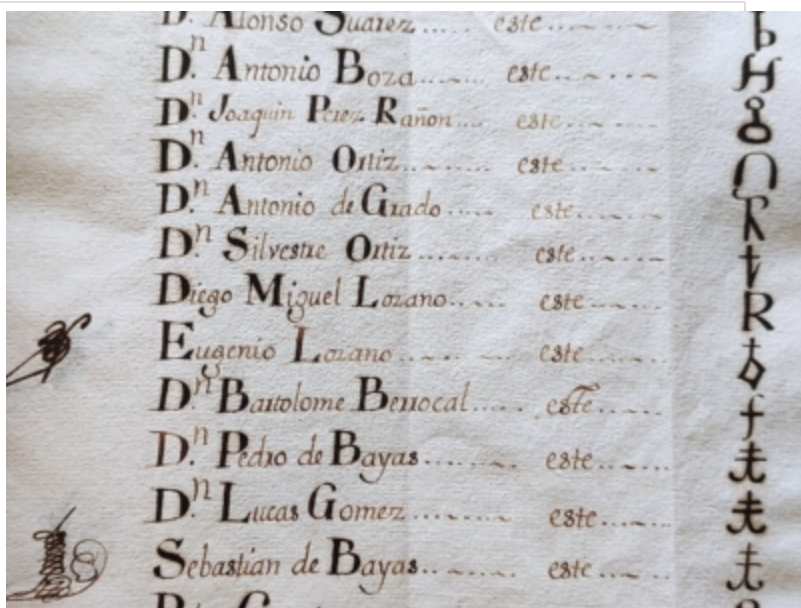 D. Alonso Suarez..... este.....
D.n Antonio Boza....... este.......
D.n Joaquin Perez Rañon... este.......
D.n Antonio Ortiz......... este.......
D.n Antonio de Grado..... este.......
D.n Silvestre Ortiz........ este.......
Diego Miguel Lozano...... este.......
Eugenio Lozano........ este.......
D.n Bartolome Berrocal..... este.......
D.n Pedro de Bayas......... este.......
D.n Lucas Gomez......... este.......
Sebastian de Bayas........ este.......